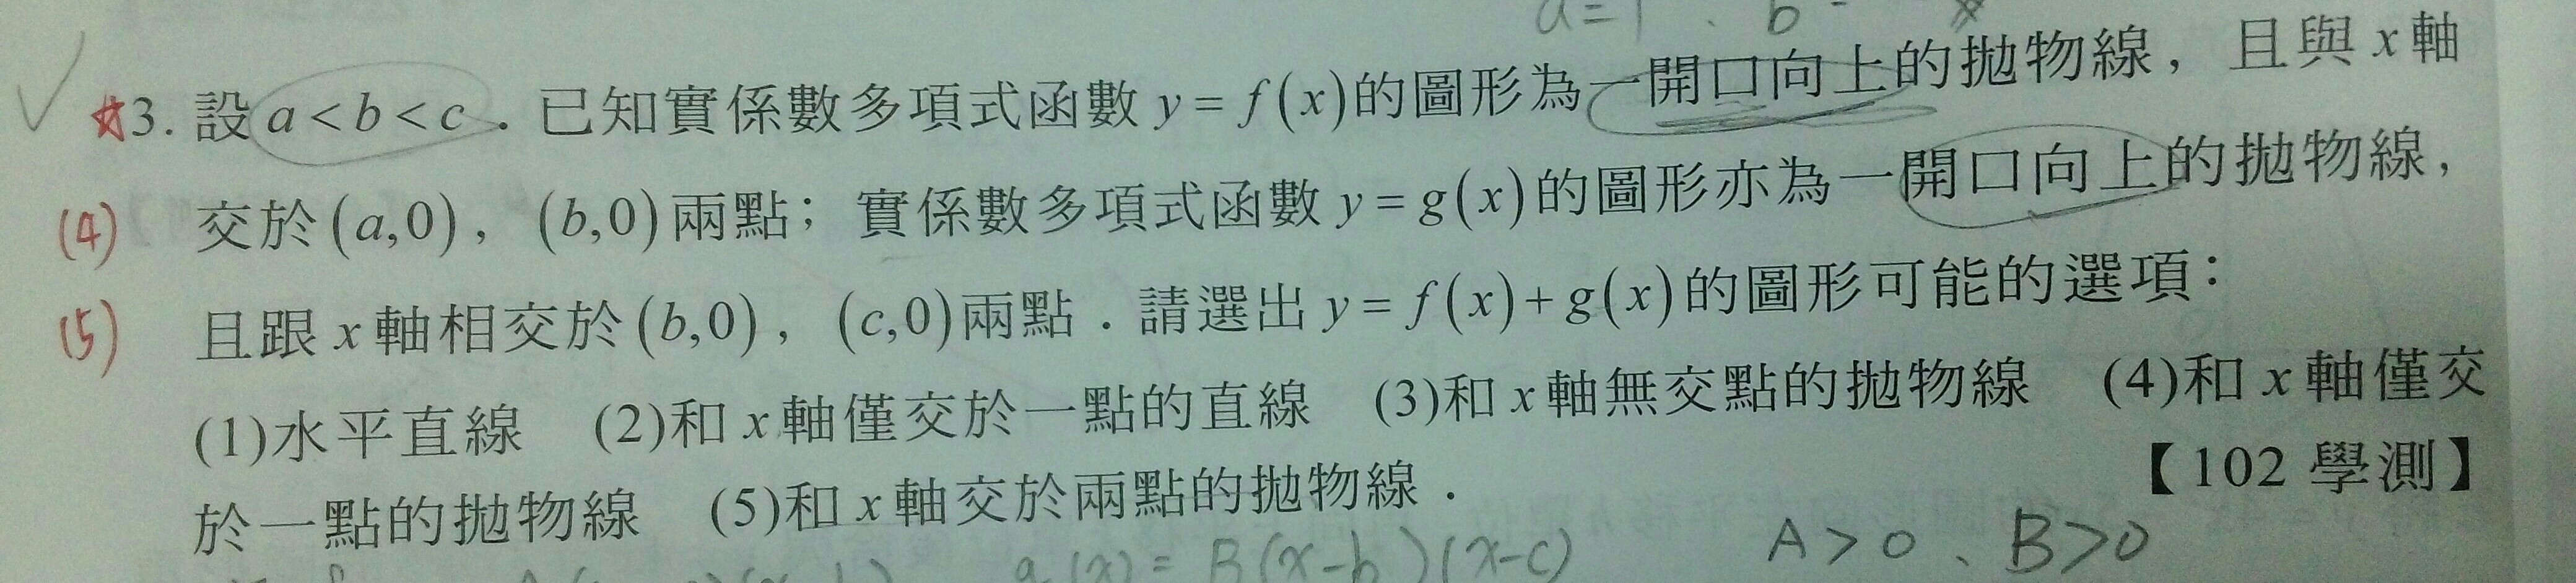 a=1、b
☆3. 設 a < b < c．已知實係數多項式函數 y = f(x)的圖形為一開口向上的拋物線，且與 x 軸
(4) 交於(a,0)，(b,0)兩點；實係數多項式函數 y = g(x)的圖形亦為一開口向上的拋物線，
(5) 且跟 x 軸相交於(b,0)，(c,0)兩點．請選出 y = f(x)+g(x)的圖形可能的選項：
(1)水平直線 (2)和 x 軸僅交於一點的直線 (3)和 x 軸無交點的拋物線 (4)和 x 軸僅交
於一點的拋物線 (5)和 x 軸交於兩點的拋物線． 【102 學測】
g(x)= B(x-b)(x-c) A>0、B>0